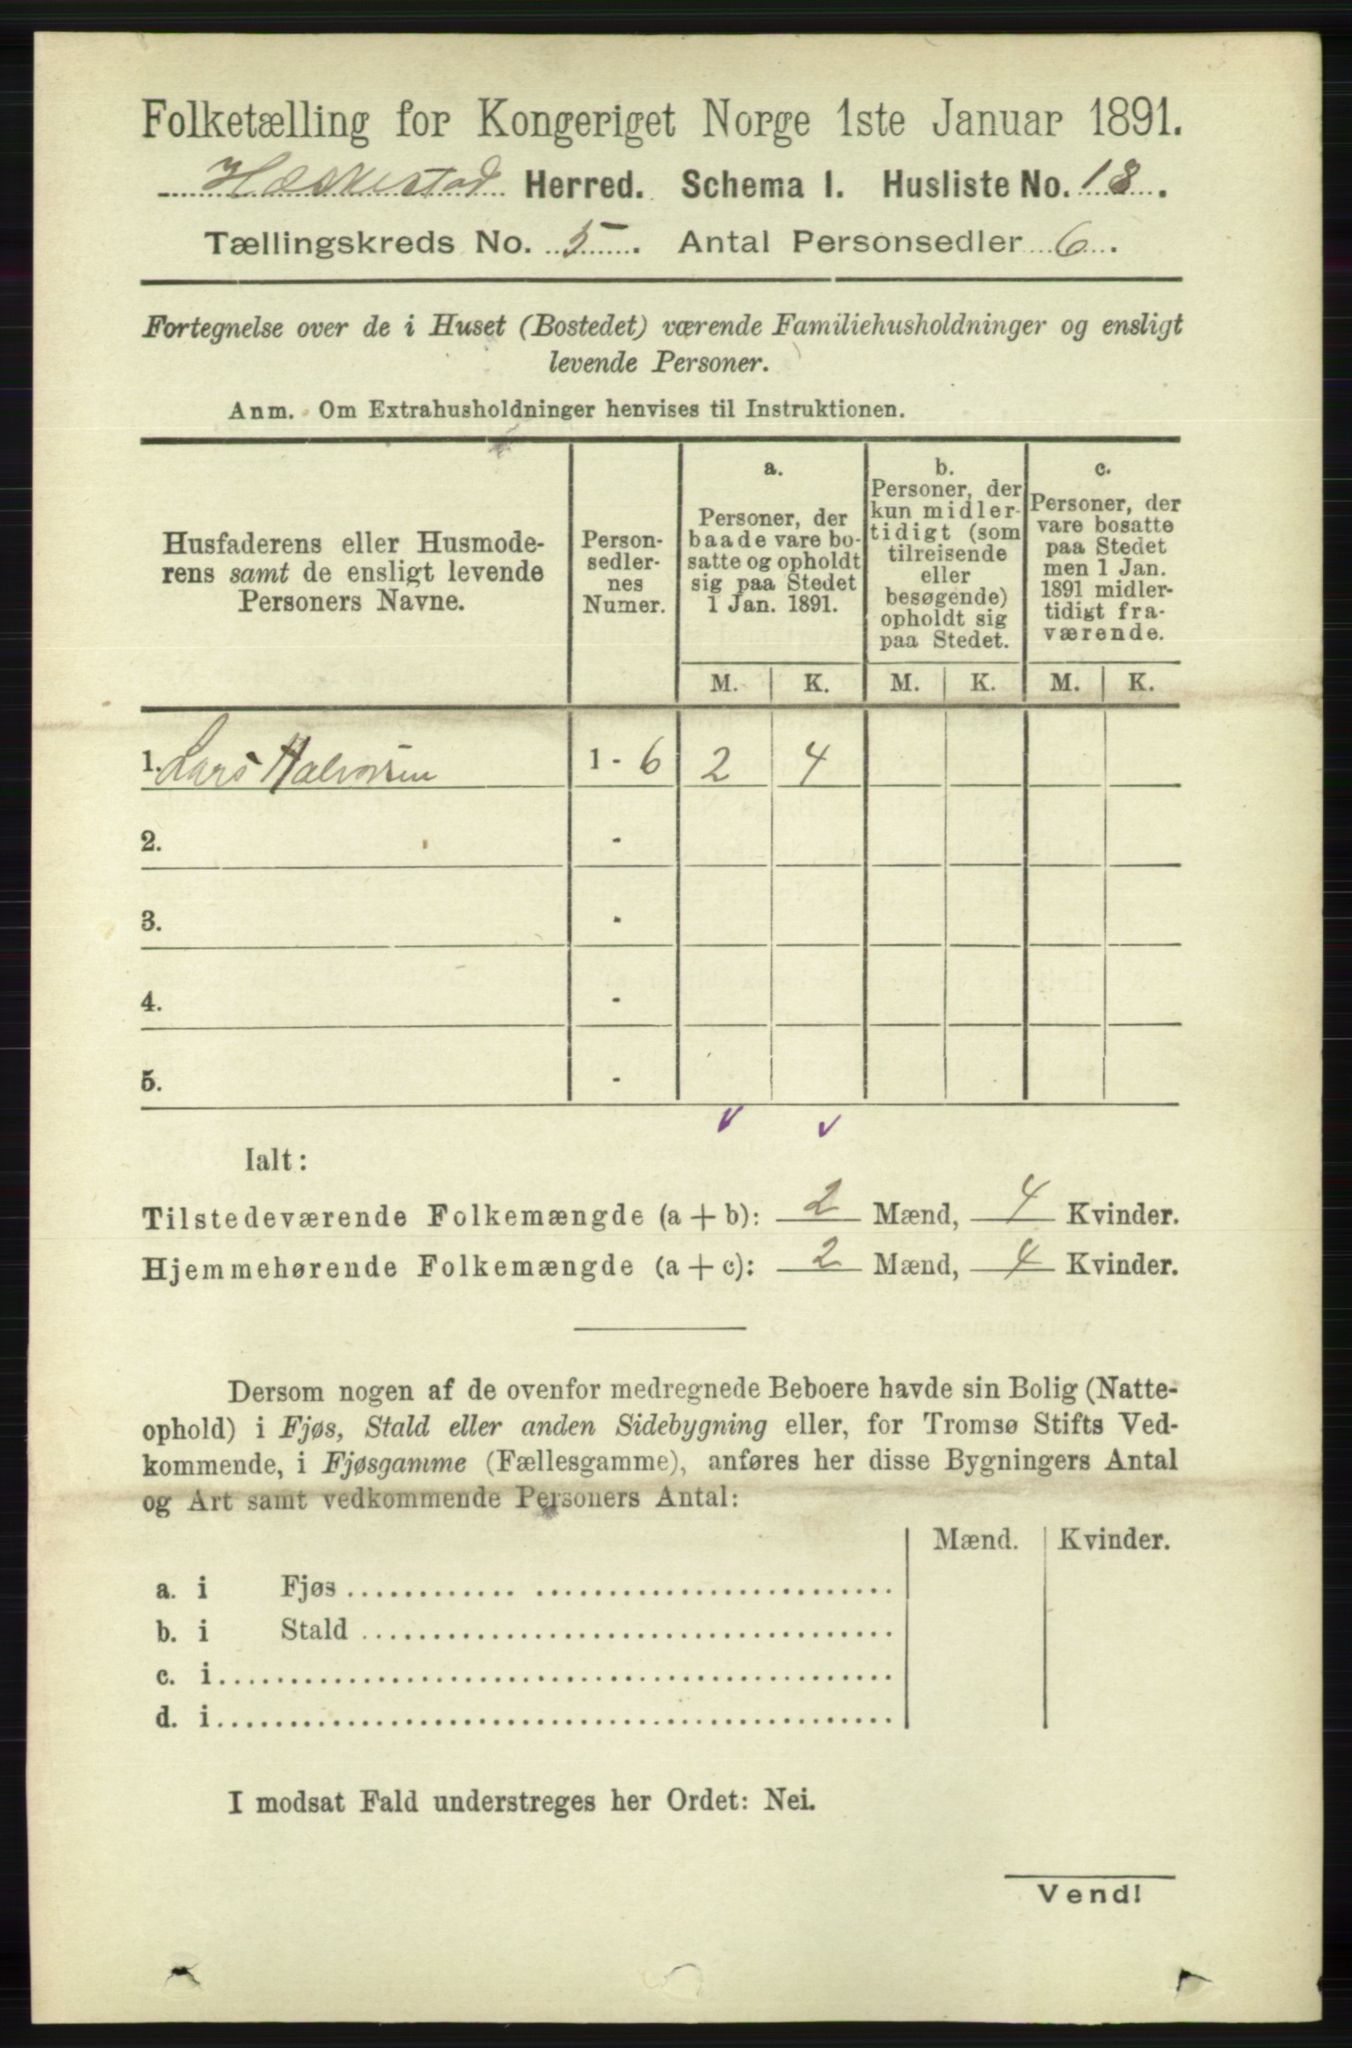 Folketælling for Kongeriget Norge 1ste Januar 1891.
Hæskestad Herred. Schema I. Husliste No. 18.
Tællingskreds No. 5. Antal Personsedler 6.
Fortegnelse over de i Huset (Bostedet) værende Familiehusholdninger og ensligt
levende Personer.
Anm. Om Extrahusholdninger henvises til Instruktionen.
Husfaderens eller Husmode-
rens samt de ensligt levende
Personers Navne.
Person-
sedler-
nes
Numer.
a.
Personer, der
baade vare bo-
satte og opholdt
sig paa Stedet
1 Jan. 1891.
b.
Personer, der
kun midler-
tidigt (som
tilreisende
eller
besøgende)
opholdt sig
paa Stedet.
c.
Personer, der
vare bosatte
paa Stedet
men 1 Jan.
1891 midler-
tidigt fra-
værende.
M. K. M. K. M. K.
1. Lars Halvorsen 1 - 6 2 4
2. -
3. -
4. -
5. -
Ialt:
Tilstedeværende Folkemængde (a + b): 2 Mænd, 4 Kvinder.
Hjemmehørende Folkemængde (a + c): 2 Mænd, 4 Kvinder.
Dersom nogen af de ovenfor medregnede Beboere havde sin Bolig (Natte-
ophold) i Fjøs, Stald eller anden Sidebygning eller, for Tromsø Stifts Ved-
kommende, i Fjøsgamme (Fællesgamme), anføres her disse Bygningers Antal
og Art samt vedkommende Personers Antal:
Mænd. Kvinder.
a. i Fjøs
b. i Stald
c. i
d. i
I modsat Fald understreges her Ordet: Nei.
Vend!